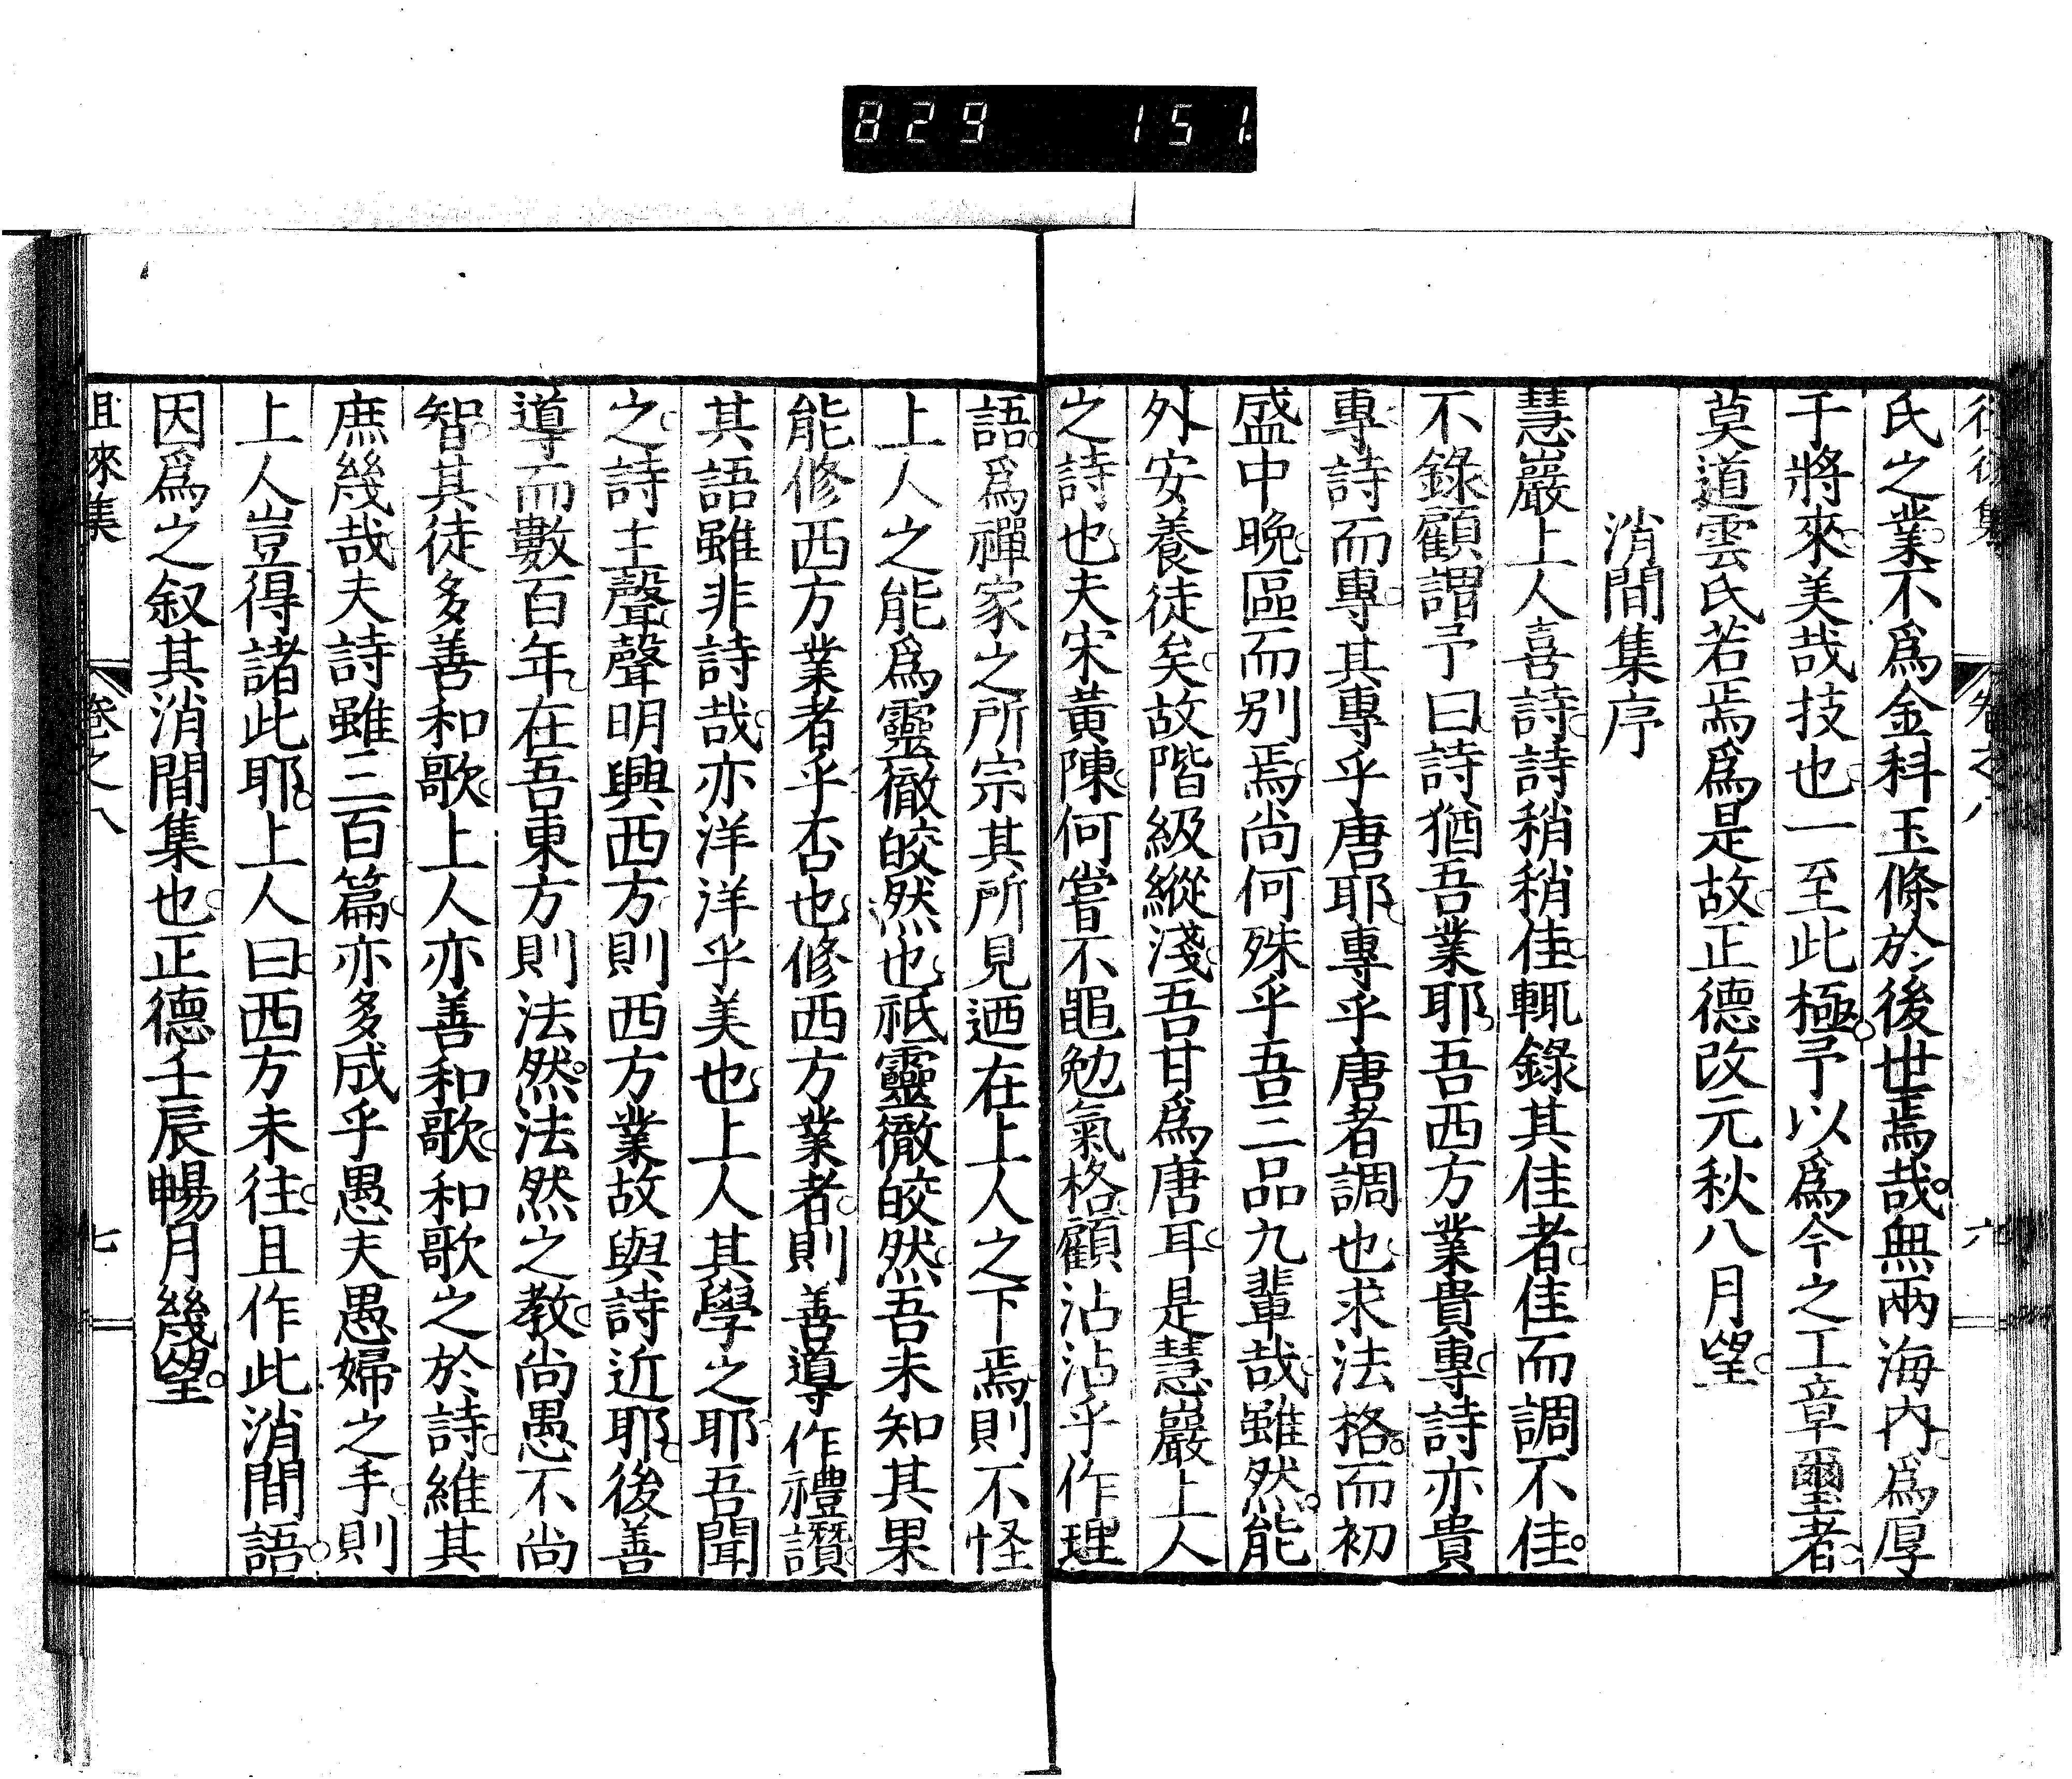 829 151
氏之業不爲金科玉條於後世焉哉無兩海內爲厚
于將來美哉技也一至此極予以爲今之工章璽者
莫道雲氏若焉爲是故正德改元秋八月望
消間集序
慧巖上人喜詩詩稍稍佳輒錄其佳者佳而調不佳
不錄顧謂予曰詩猶吾業耶吾西方業貴專詩亦貴
專詩而專其專乎唐耶專乎唐者調也求法格而初
盛中晚區而别焉尚何殊乎吾三品九輩哉雖然能
外安養徒矣故階級縱淺吾甘爲唐耳是慧巖上人
之詩也夫宋黃陳何嘗不黽勉氣格顧沾沾乎作理
語爲禪家之所宗其所見迺在上人之下焉則不怪
上人之能爲靈徹皎然也祇靈徹皎然吾未知其果
能修西方業者乎否也修西方業者則善導作禮讚
其語雖非詩哉亦洋洋乎美也上人其學之耶吾聞
之詩主聲聲明興西方則西方業故與詩近耶後善
導而數百年在吾東方則法然法然之教尚愚不尚
智其徒多善和歌上人亦善和歌和歌之於詩維其
庶幾哉夫詩雖三百篇亦多成乎愚夫愚婦之手則
上人豈得諸此耶上人曰西方未往且作此消間語
因爲之叙其消間集也正德壬辰暢月幾望
徂來集 卷之八 七